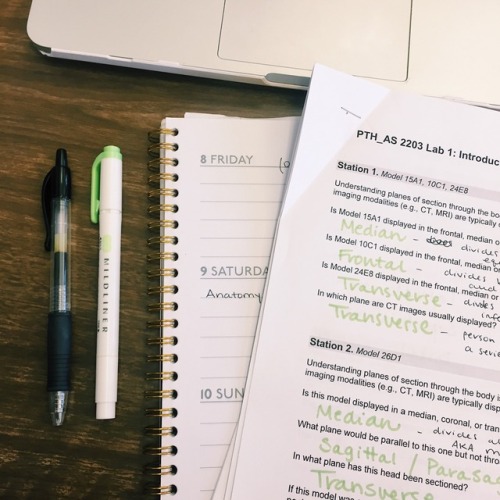 MILDLINER
8 FRIDAY
9 SATURDA
Anatomy
10 SUN
PTH_AS 2203 Lab 1: Introduc
Station 1. Model 15A1, 10C1, 24E8
Understanding planes of section through the body
imaging modalities (e.g., CT, MRI) are typically d
Is Model 15A1 displayed in the frontal, median o
Median - does divides
Is Model 10C1 displayed in the frontal, median or
Frontal - divides
and
Is Model 24E8 displayed in the frontal, median or
Transverse - divides
In which plane are CT images usually displayed?
Transverse - person
a
Station 2. Model 26D1
Understanding planes of section through the body is
imaging modalities (e.g., CT, MRI) are typically disp
Is this model displayed in a median, coronal, or trans
Median - divides
AKA
What plane would be parallel to this one but not thro
Sagittal / Parasa
In what plane has this head been sectioned?
Transvers
If this model was